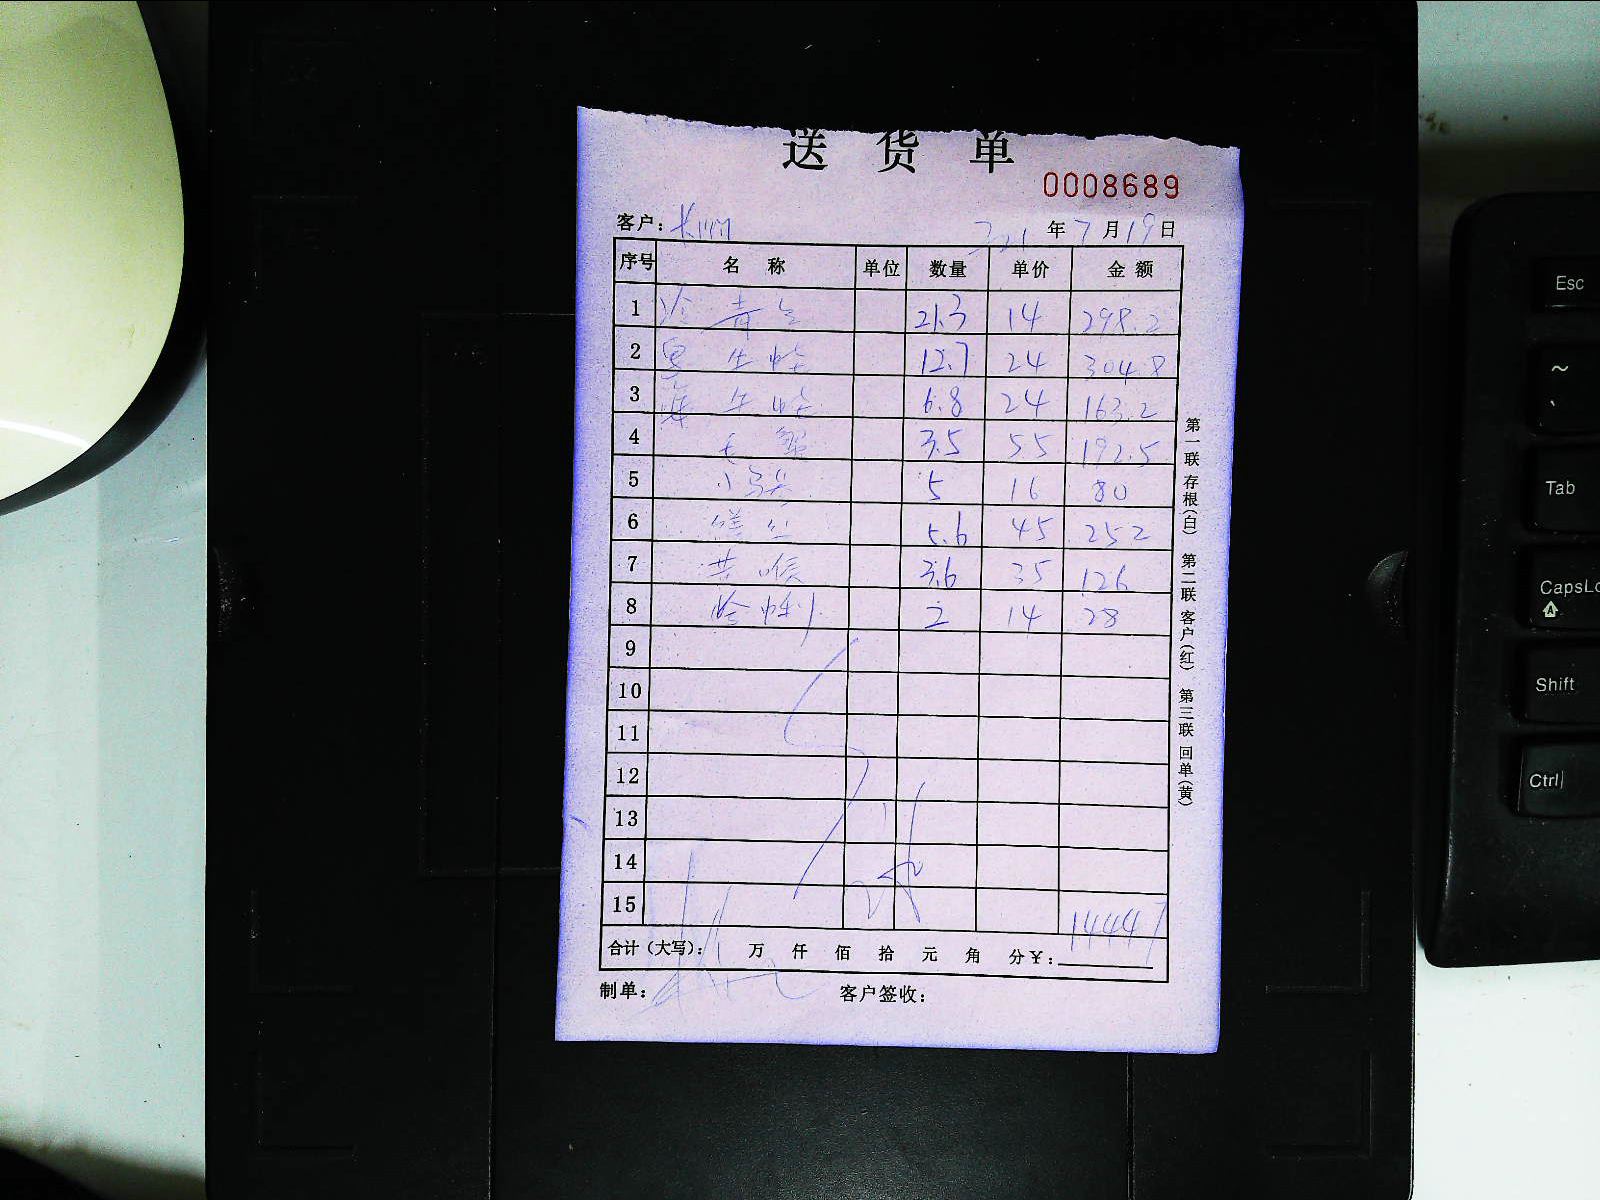 送 货 单
0008689
客户: 年 7 月 19 日
序号 名 称 单位 数量 单价 金 额
1 21.3 14 298.2
2 12.7 24 304.8
3 6.8 24 163.2
4 毛 蟹 3.5 55 192.5
5 5 16 80
6 5.6 45 252
7 3.6 35 126
8 2 14 28
9
10
11
12
13
14
15
合计(大写): 万 仟 佰 拾 元 角 分¥: 1444.7
制单: 客户签收:
第一联 存根(白) 第二联 客户(红) 第三联 回单(黄)
Esc
~
、
Tab
CapsLo
A
Shift
Ctrl